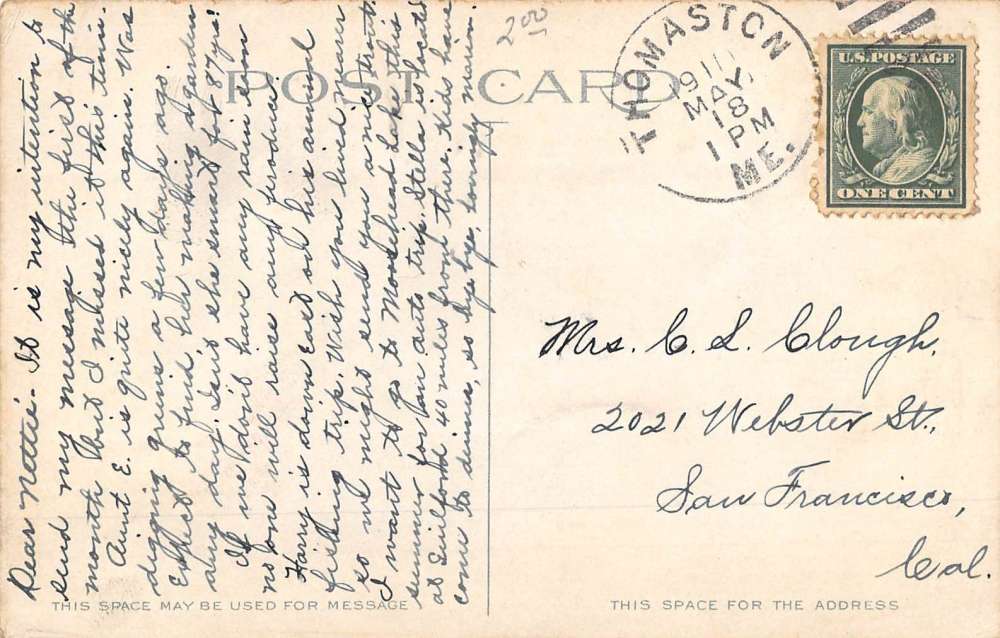 POST CARD
200
THOMASTON
1911
MAY
18
1 PM
ME.
U.S. POSTAGE
ONE CENT
Dear Nettie:- It is my intention to
send my message the first of the
month but I missed it this time.
Aunt E. is quite nicely again. Was
digging greens a few days ago.
Expect to find her making garden
any day. Isn't she smart for 87 yrs!
If we don't have any rain soon
no one will raise any produce.
Harry is down East on his annual
fishing trip. Wish you lived near
so we might send you a nice trout.
I want to go to Moosehead Lake this
summer for an auto trip. Stella's located
at Guilford 40 miles from there. Kids have
come to dinner, so bye bye, lovingly
Mrs. C. L. Clough.
2021 Webster St.,
San Francisco,
Cal.
THIS SPACE MAY BE USED FOR MESSAGE
THIS SPACE FOR THE ADDRESS